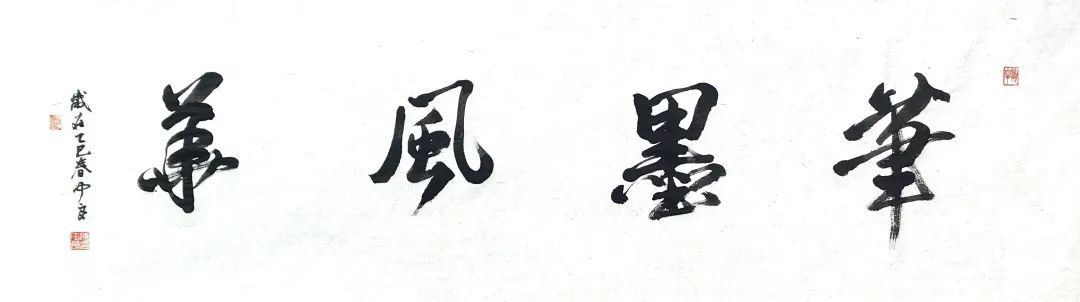 筆墨風華
歲在乙巳春中良